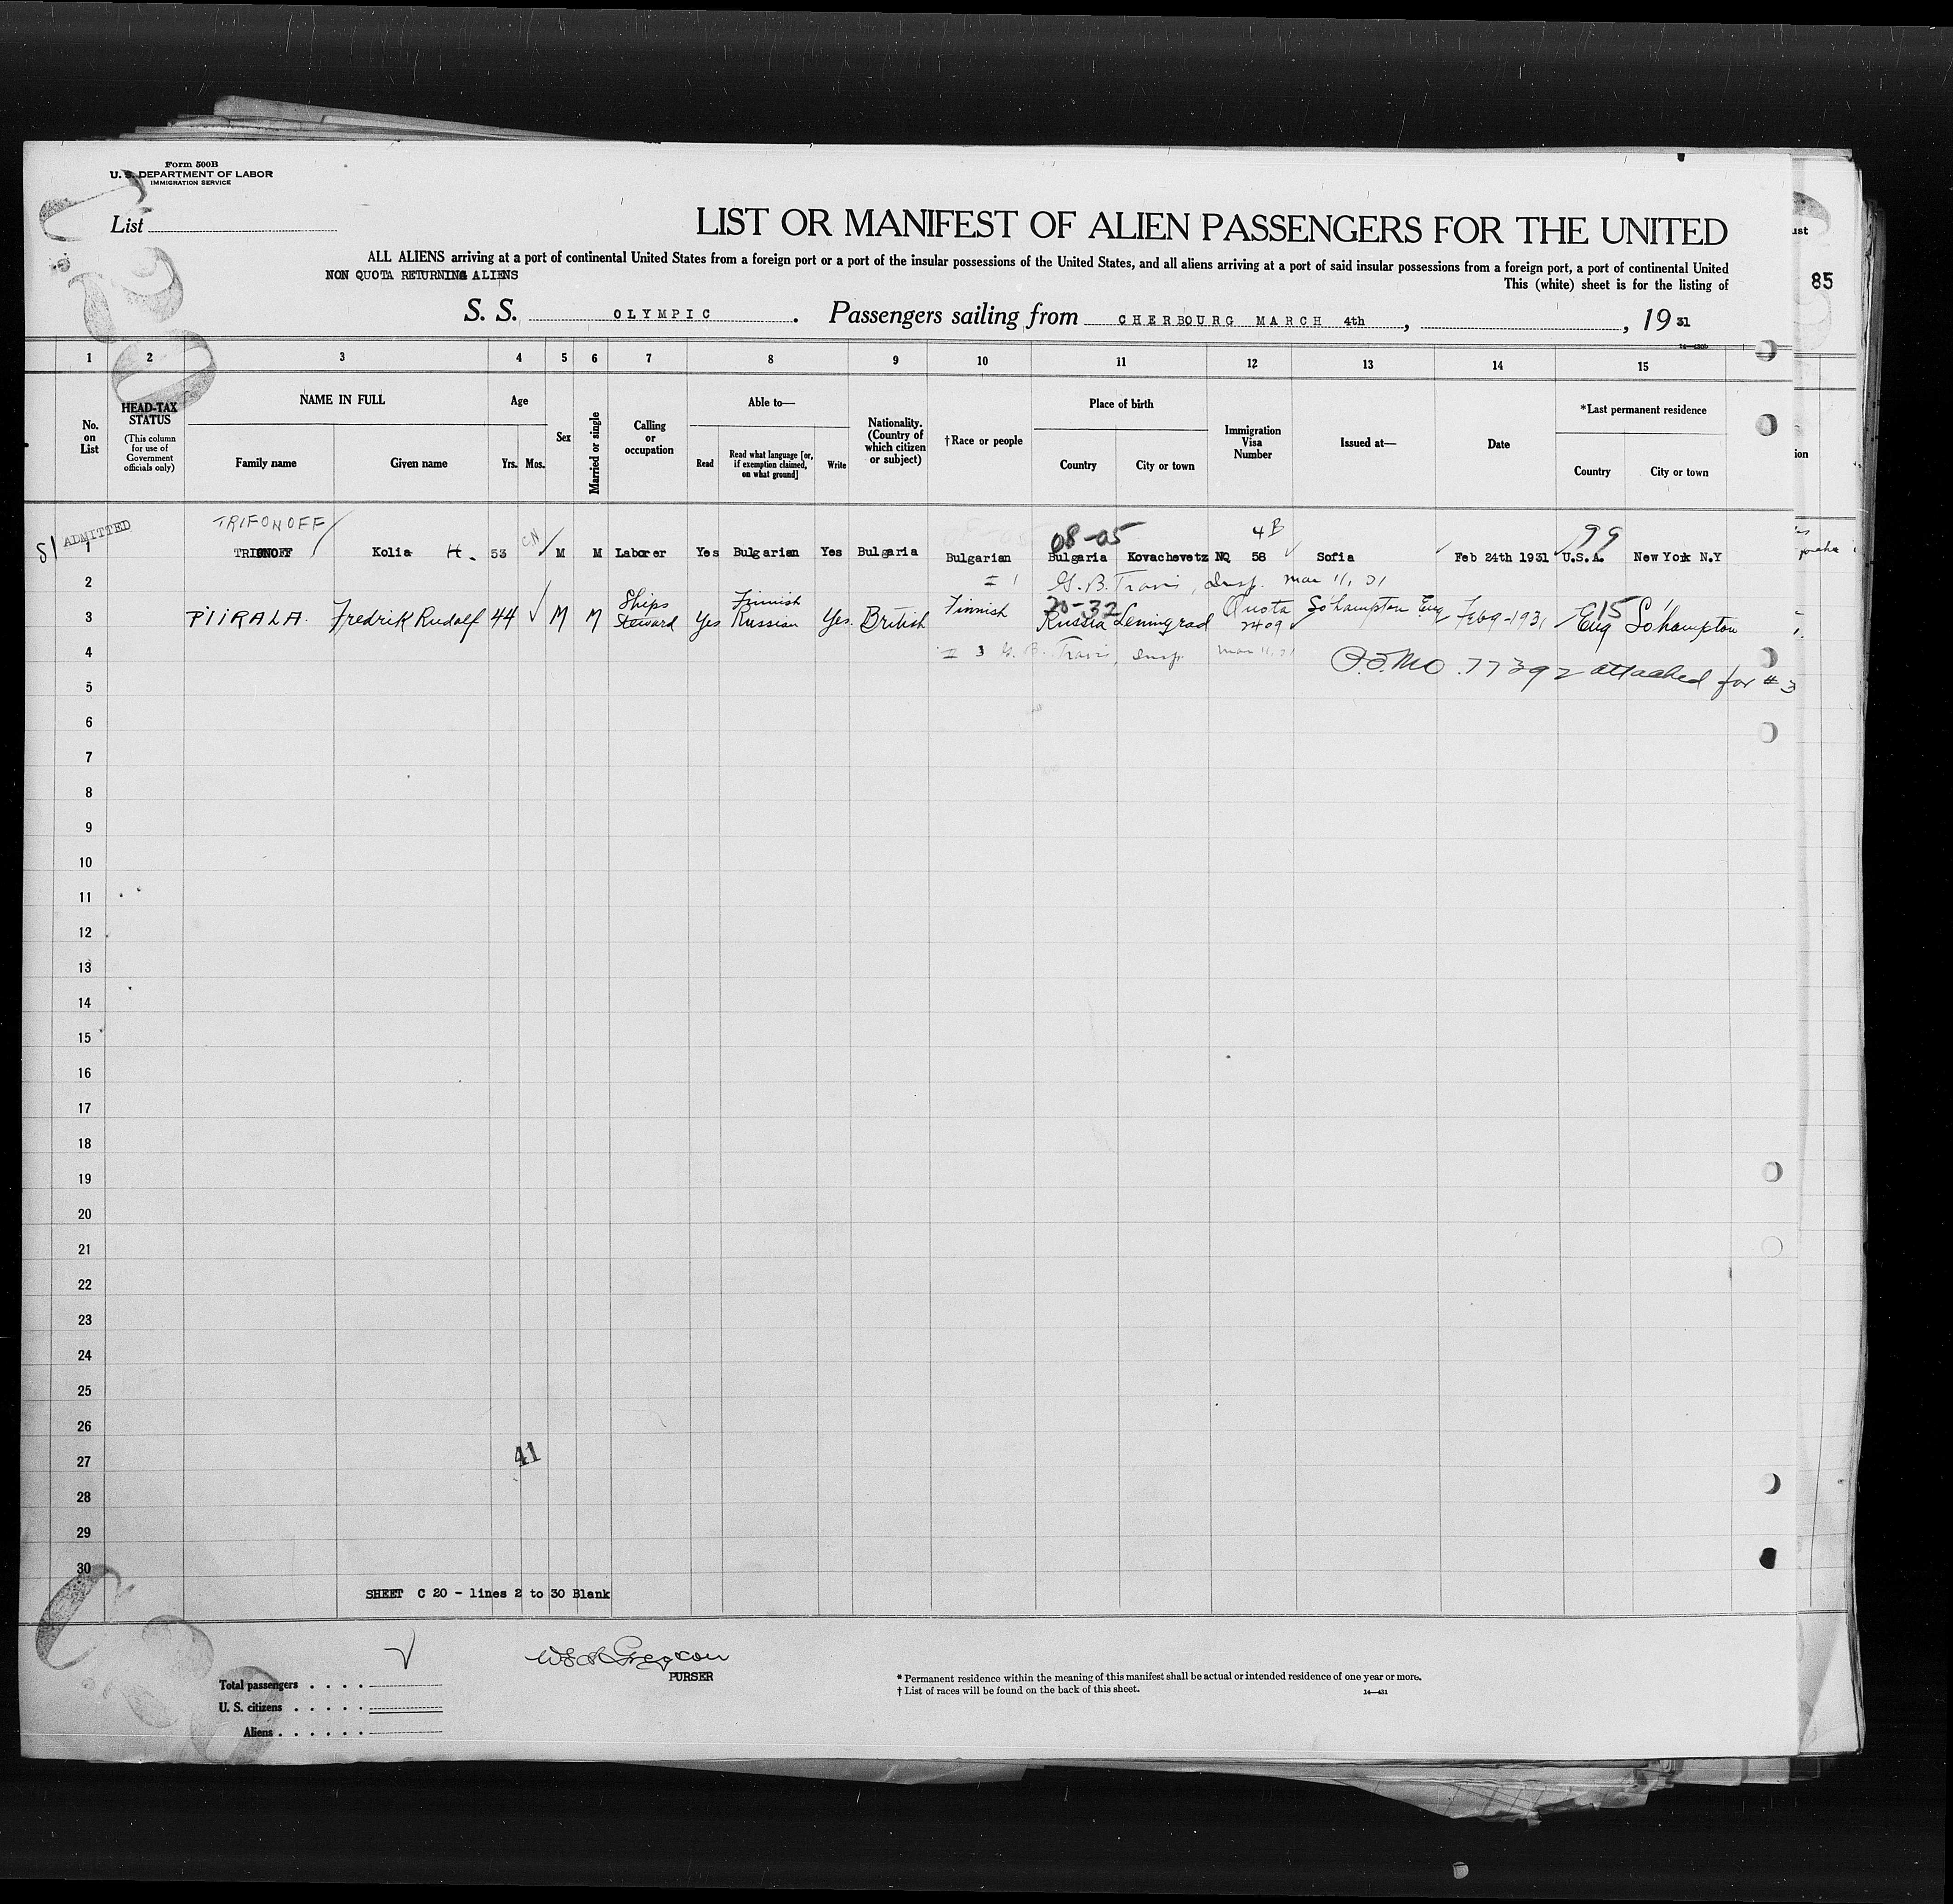 Form 500B
U. S. DEPARTMENT OF LABOR
IMMIGRATION SERVICE
List
LIST OR MANIFEST OF ALIEN PASSENGERS FOR THE UNITED
ALL ALIENS arriving at a port of continental United States from a foreign port or a port of the insular possessions of the United States, and all aliens arriving at a port of said insular possessions from a foreign port, a port of continental United
NON QUOTA RETURNING ALIENS
This (white) sheet is for the listing of
85
S. S. OLYMPIC. Passengers sailing from CHERBOURG MARCH 4th, , 19 31
1 2 3 4 5 6 7 8 9 10 11 12 13 14 15
No. on List
HEAD-TAX STATUS
(This column for use of Government officials only)
NAME IN FULL
Family name Given name
Age
Yrs. Mos.
Sex
Married or single
Calling or occupation
Able to—
Read
Read what language [or, if exemption claimed, on what ground]
Write
Nationality. (Country of which citizen or subject)
†Race or people
Place of birth
Country City or town
Immigration Visa Number
Issued at—
Date
*Last permanent residence
Country City or town
ADMITTED
TRIFONOFF
08-05 4B 99
1 TRIONOFF Kolia H. 53 M M Laborer Yes Bulgarian Yes Bulgaria Bulgarian Bulgaria Kovachevetz NQ 58 Sofia Feb 24th 1931 U.S.A. New York N.Y
2 # 1 G. B. Travis, Insp. Mar 11, 31
Ships Finnish 20-32 Quota 15
3 PIIRALA. Fredrik Rudolf 44 M M Steward Yes Russian Yes. British Finnish Russia Leningrad 2409 So'hampton Eng Feb 9-1931 Eng So'hampton
4 # 3 G. B. Travis, Insp. Mar 11, 31 77392 attached for # 3
5
6
7
8
9
10
11
12
13
14
15
16
17
18
19
20
21
22
23
24
25
26
27
41
28
29
30
SHEET C 20 - lines 2 to 30 Blank
PURSER
Total passengers
U. S. citizens
Aliens
* Permanent residence within the meaning of this manifest shall be actual or intended residence of one year or more.
† List of races will be found on the back of this sheet.
14—431